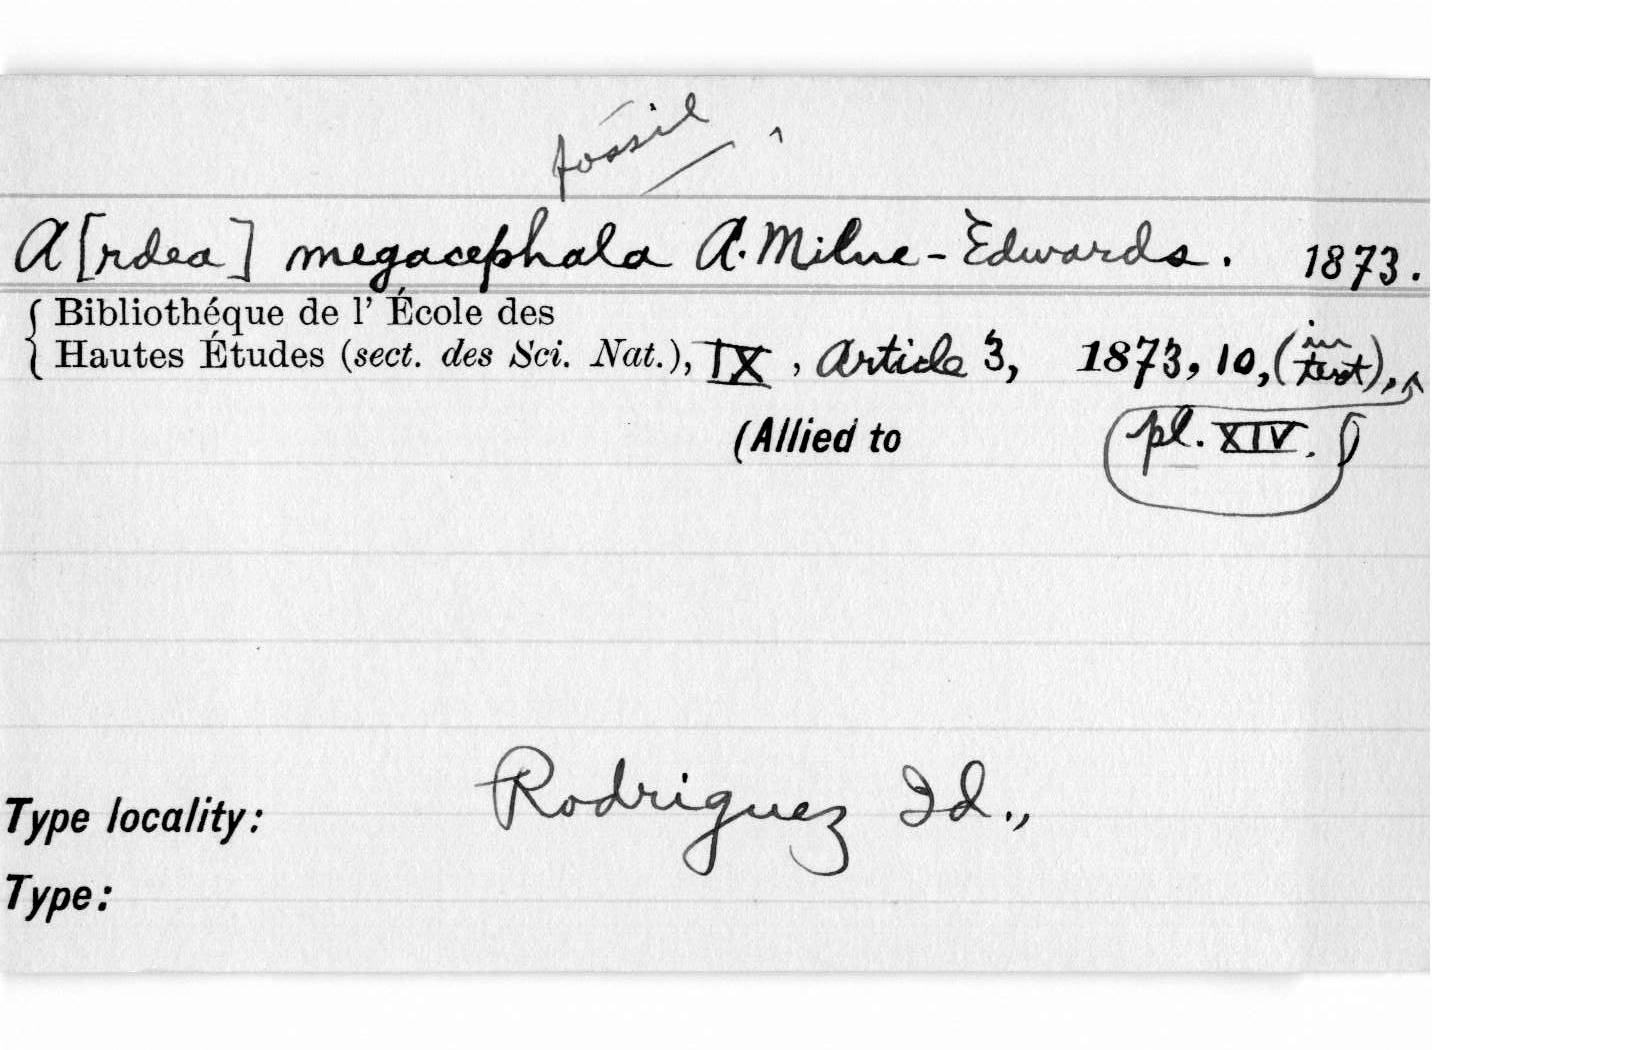 fossil
A[rdea] megacephala A. Milne-Edwards. 1873.
Bibliothéque de l' École des
Hautes Études (sect. des Sci. Nat.), IX, Article 3, 1873, 10, (in text),
(Allied to pl. XIV.)
Type locality: Rodriguez Id.,
Type: